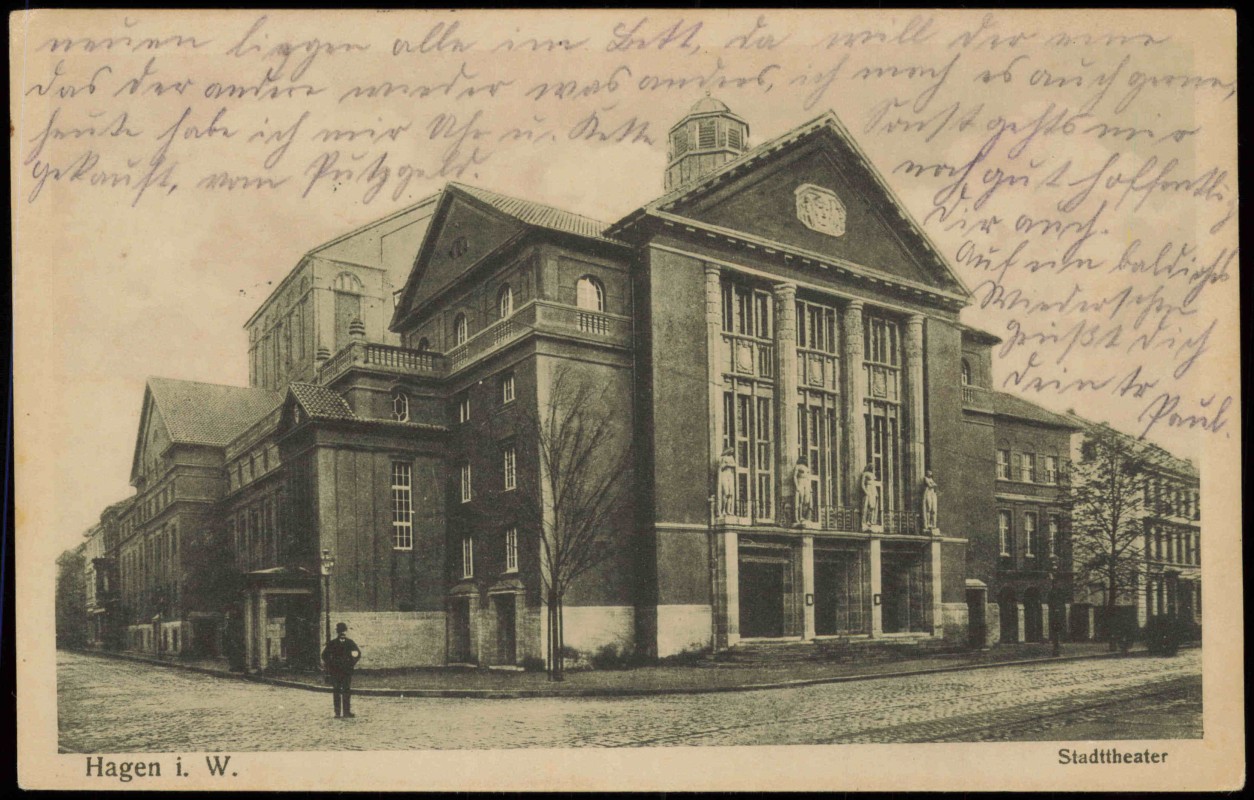 neuen liegen alle im Bett, da will der eine
das der andere wieder was anders, ich mach es auch gerne,
heute habe ich mir Uhr u. Kette
gekauft, vom Putzgeld.
Sonst gehts mir
noch gut hoffentlich
Dir auch.
Auf ein baldiges
Wiedersehen
Grüßt Dich
Dein tr
Paul.
Hagen i. W.
Stadttheater